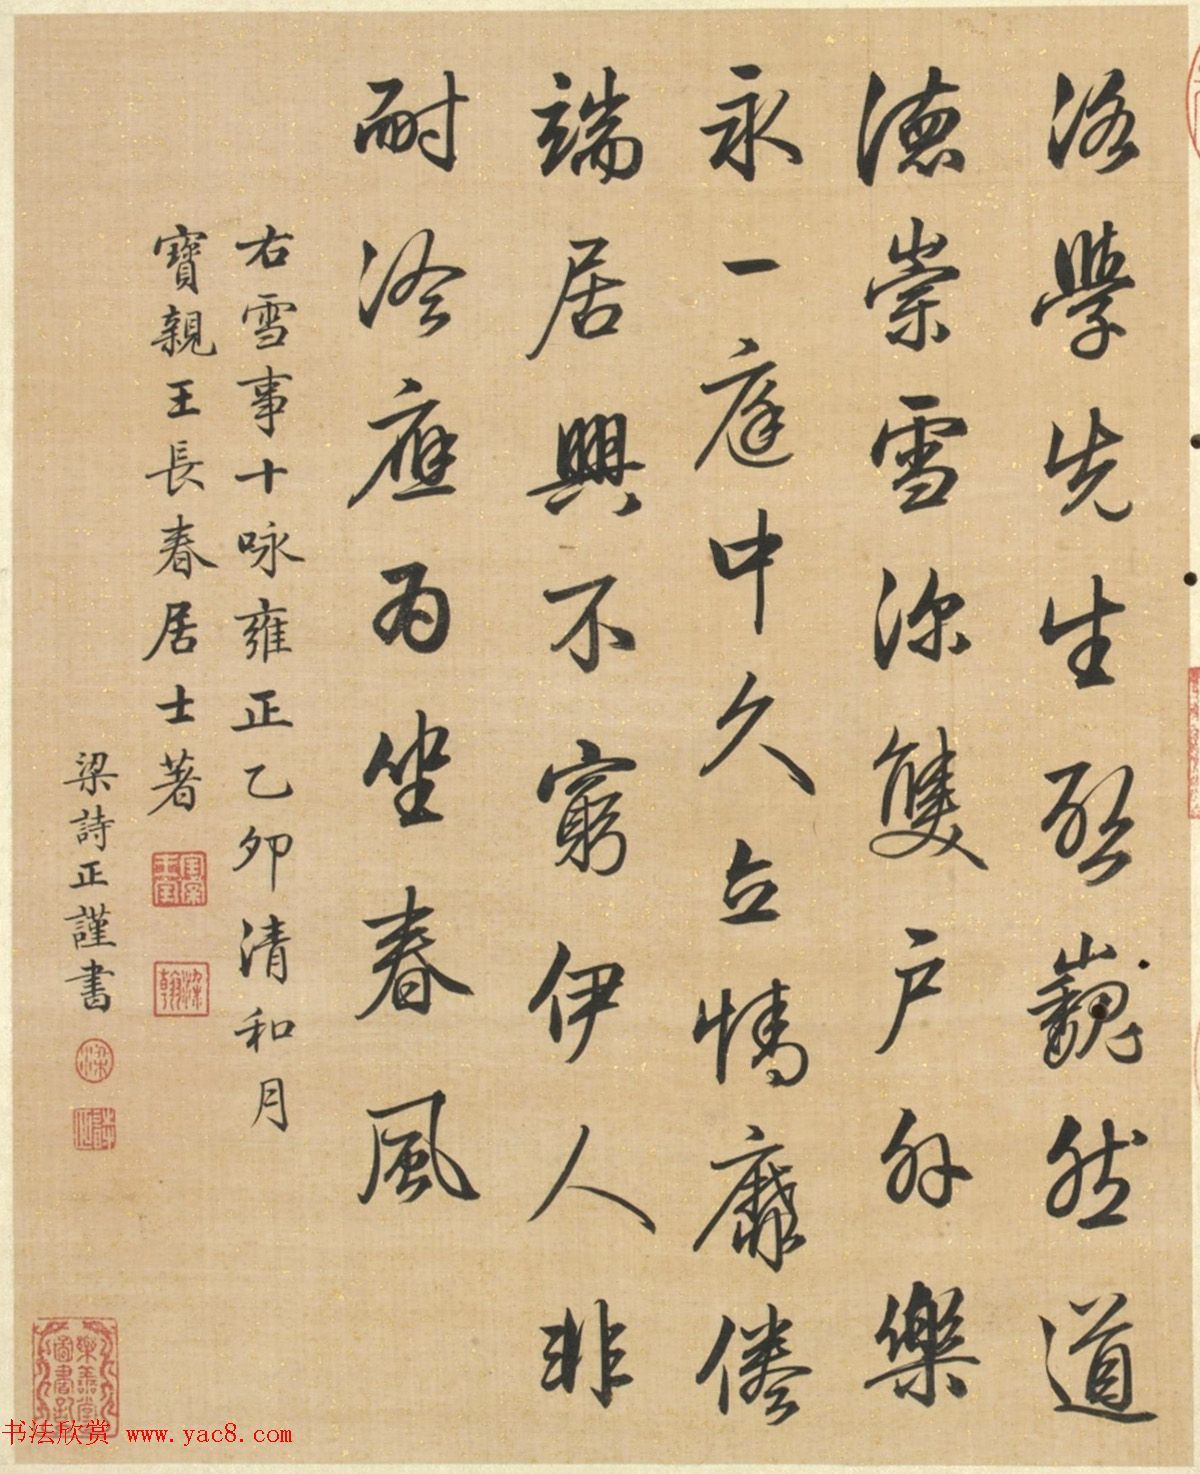 洛學先生程巍然道
德崇雪深雙戶外樂
永一庭中久立情靡倦
端居興不窮伊人非
耐冷應為坐春風
右雪事十咏雍正乙卯清和月
寶親王長春居士著
梁詩正謹書
樂善堂圖書記
书法欣赏 www.yac8.com